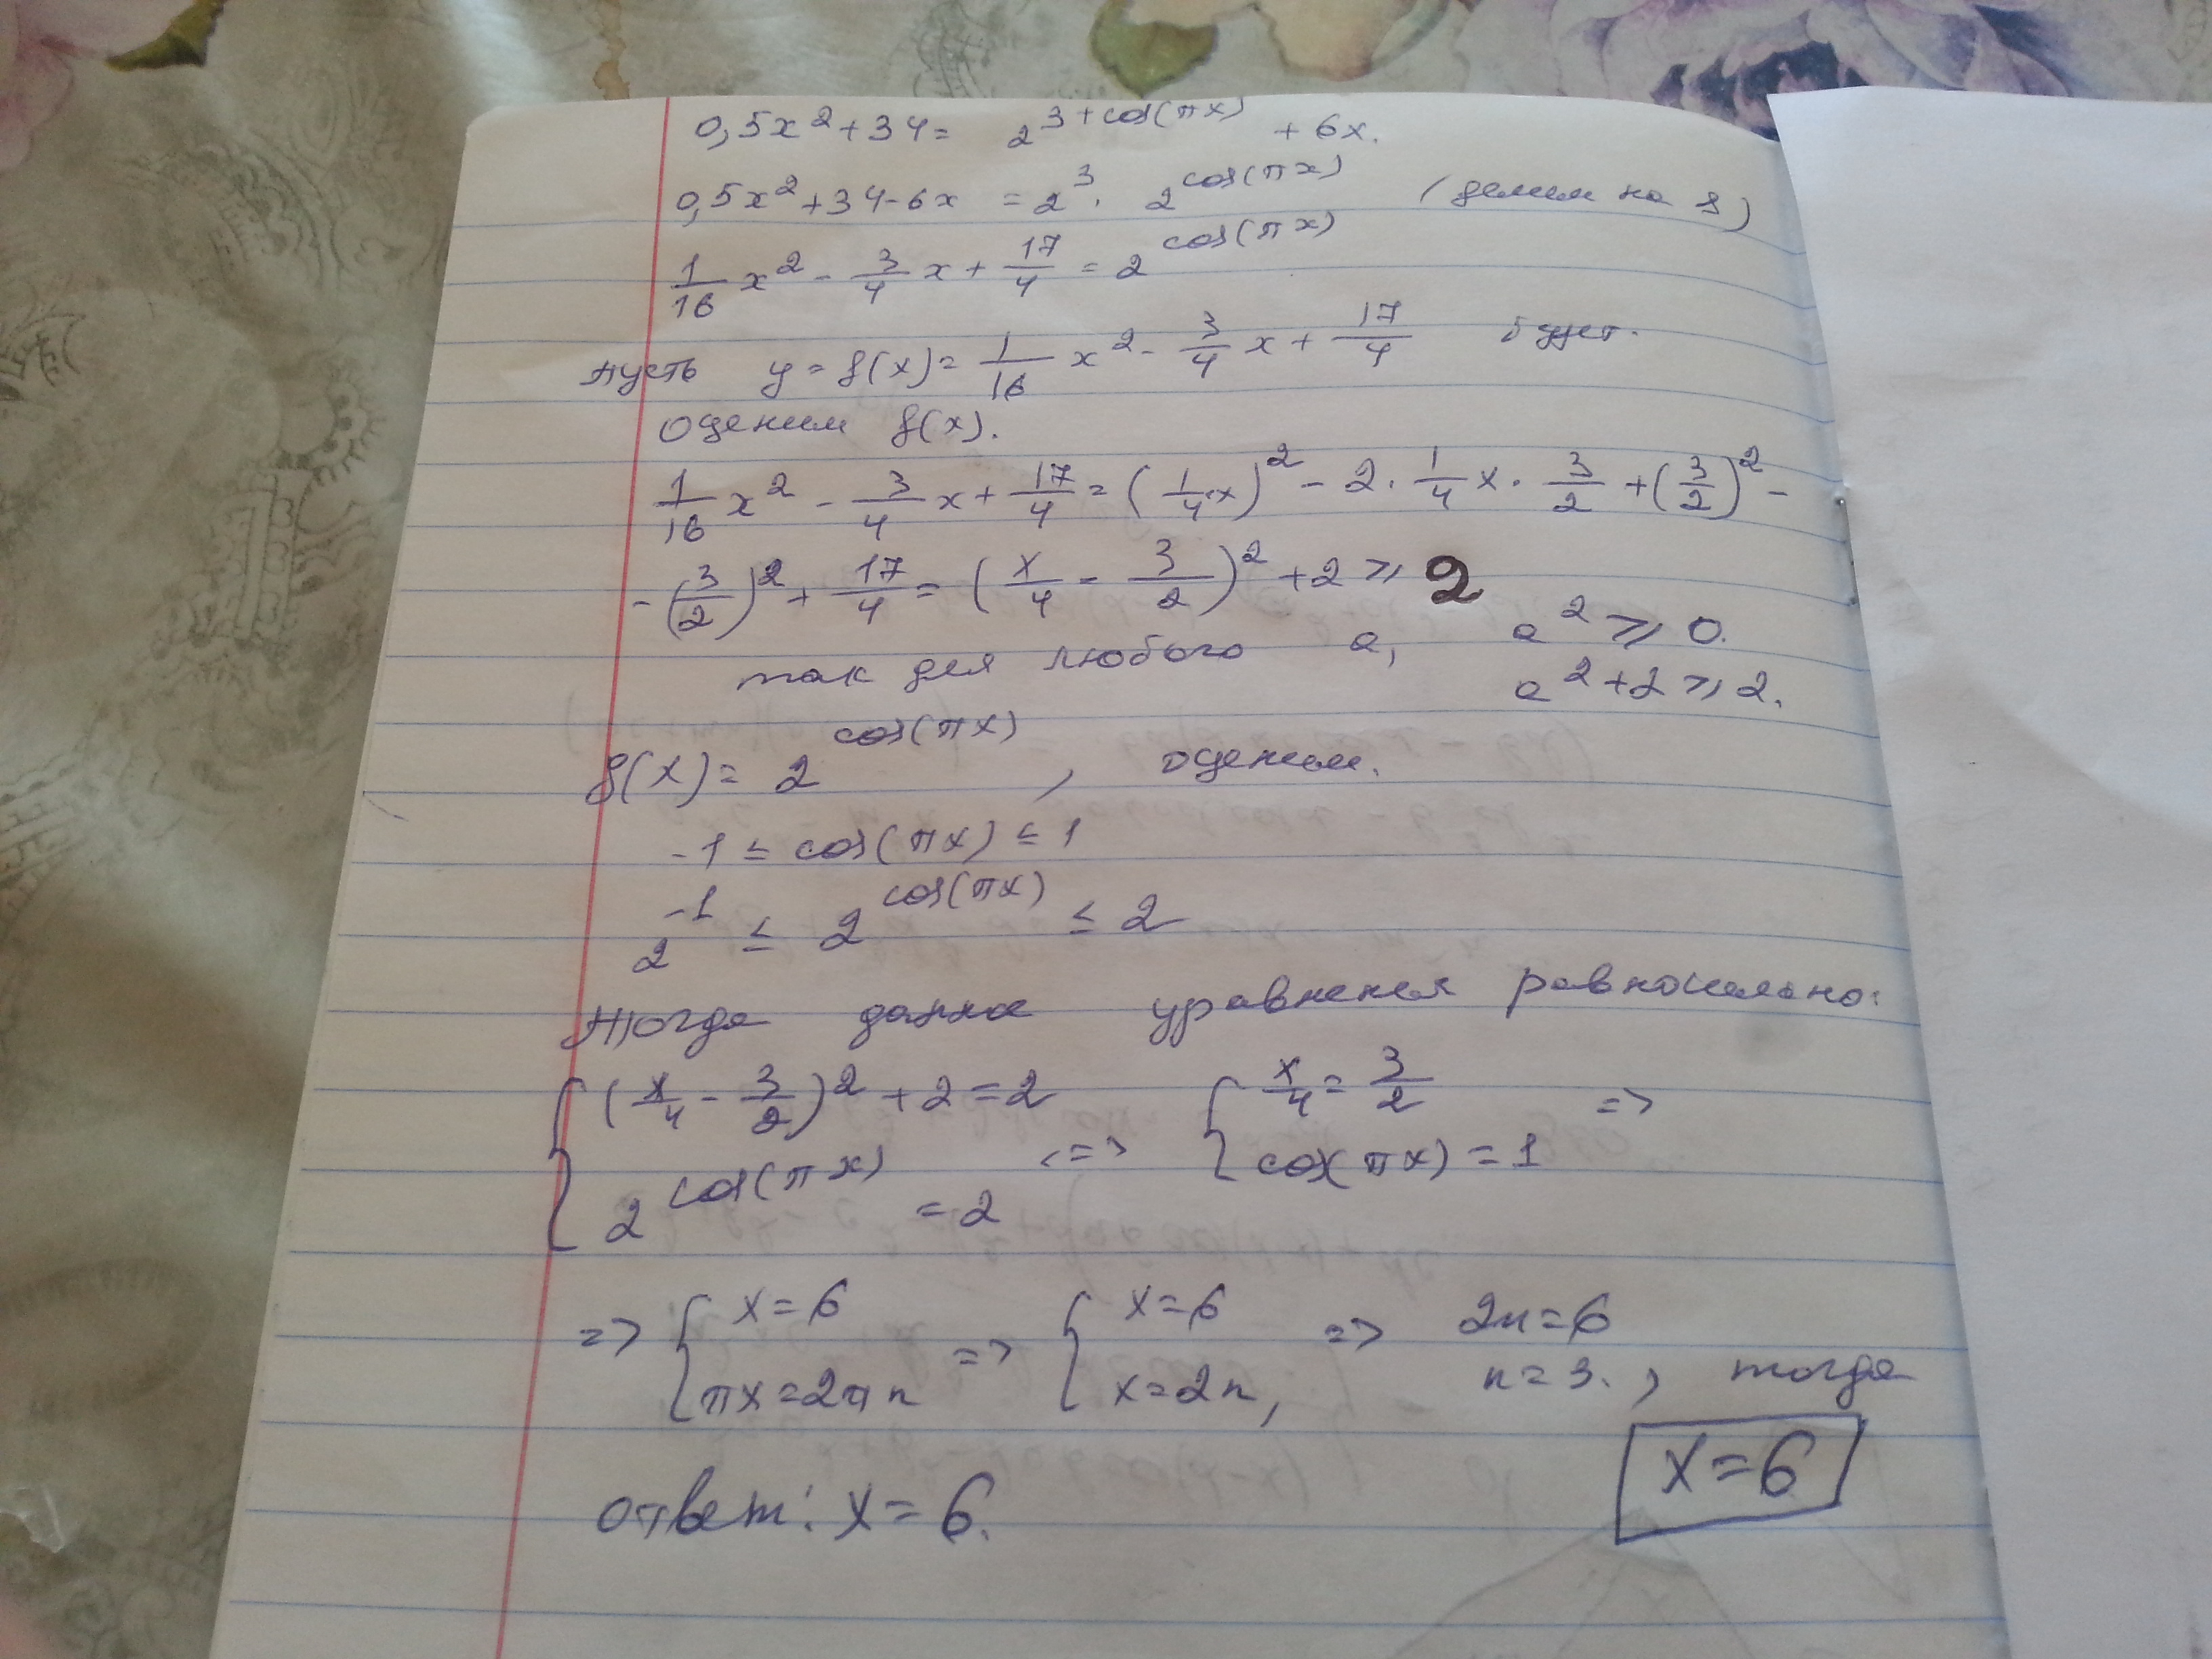 0,5x² + 34 = 2^(3+cos(πx)) + 6x.
0,5x² + 34 - 6x = 2³ · 2^cos(πx) (делим на 8)
1/16 x² - 3/4 x + 17/4 = 2^cos(πx)
пусть y = f(x) = 1/16 x² - 3/4 x + 17/4 будет.
Оценим f(x).
1/16 x² - 3/4 x + 17/4 = (1/4 x)² - 2 · 1/4 x · 3/2 + (3/2)² -
- (3/2)² + 17/4 = (x/4 - 3/2)² + 2 ⩾ 2
так для любого a, a² ⩾ 0.
a² + 2 ⩾ 2.
g(x) = 2^cos(πx), оценим.
-1 ≤ cos(πx) ≤ 1
2^-1 ≤ 2^cos(πx) ≤ 2
Тогда уравнения равносильно:
{ (x/4 - 3/2)² + 2 = 2 { x/4 = 3/2 =>
2^cos(πx) = 2 <=> cos(πx) = 1
=> { x = 6 => { x = 6 => 2n = 6
πx = 2πn x = 2n, n = 3. , тогда
x = 6
ответ: x = 6.